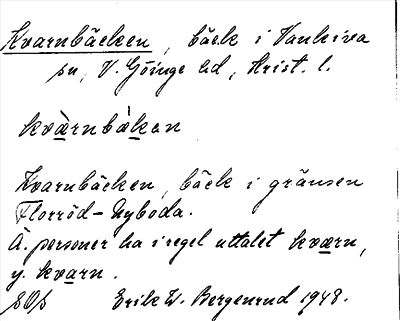 Kvarnbäcken, bäck i Vankiva
sn, V. Göinge hd, Krist. l.
kvàrnbàkan
Kvarnbäcken, bäck i gränsen
Florröd - Nyboda.
Ä. personer ha i regel uttalet kværn,
y. kvarn.
Erik W. Bergenrud 1948.